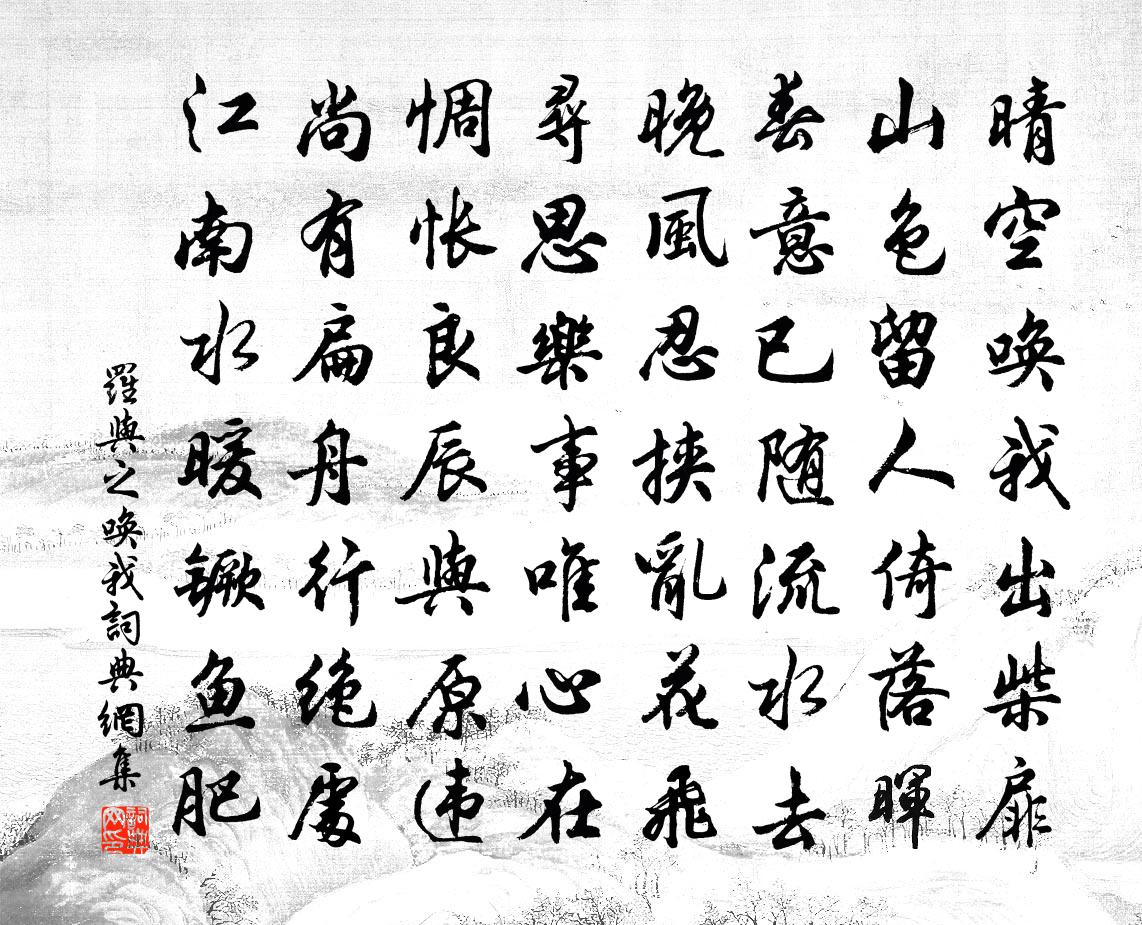 晴空唤我出柴扉
山色留人倚落暉
春意已随流水去
晚風忍挟亂花飛
尋思樂事唯心在
惆怅良辰與原违
尚有扁舟行绝處
江南水暖鳜鱼肥
羅與之唤我詞典網集